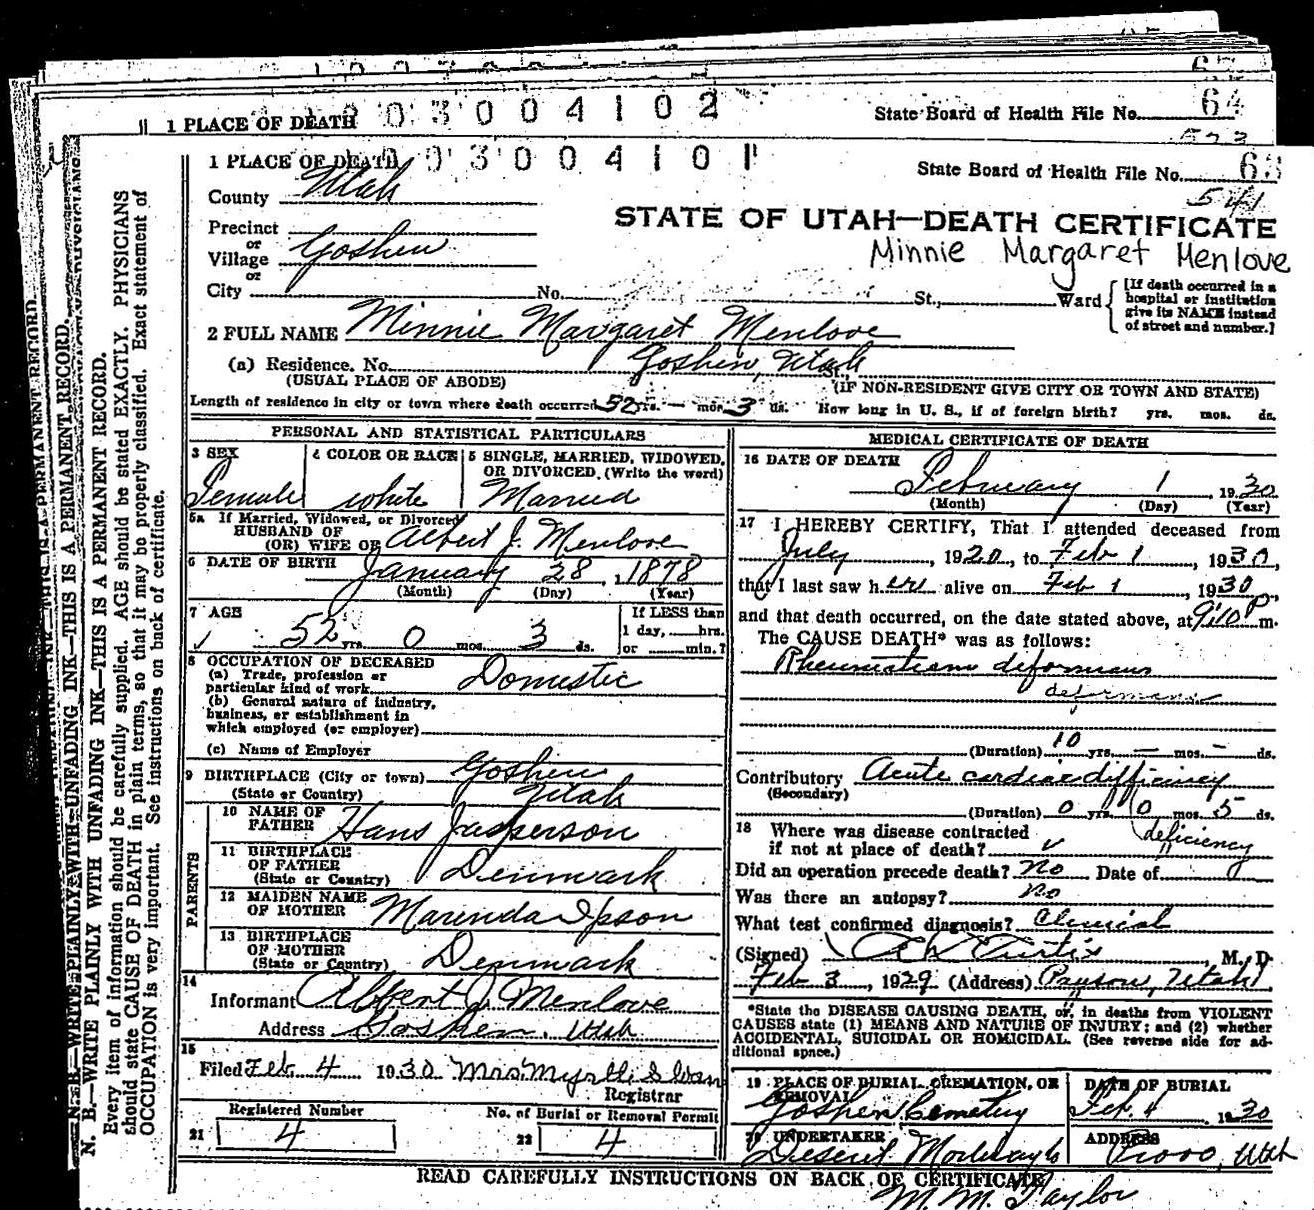 65
64
1 PLACE OF DEATH 03004102 State Board of Health File No. 64
572
1 PLACE OF DEATH 03004101 State Board of Health File No. 63
541
County Utah
STATE OF UTAH—DEATH CERTIFICATE
Minnie Margaret Menlove
Precinct
or
Village Goshen
or
City No. St., Ward
[If death occurred in a
hospital or institution
give its NAME instead
of street and number.]
2 FULL NAME Minnie Margaret Menlove
(a) Residence. No. Goshen, Utah St.,
(USUAL PLACE OF ABODE) (IF NON-RESIDENT GIVE CITY OR TOWN AND STATE)
Length of residence in city or town where death occurred 52 yrs. — mos. 3 ds. How long in U. S., if of foreign birth? yrs. mos. ds.
PERSONAL AND STATISTICAL PARTICULARS
3 SEX 4 COLOR OR RACE 5 SINGLE, MARRIED, WIDOWED,
OR DIVORCED. (Write the word)
Female white Married
5a If Married, Widowed, or Divorced
HUSBAND OF
(OR) WIFE OF Albert J. Menlove
6 DATE OF BIRTH January 28, 1878
(Month) (Day) (Year)
7 AGE 52 yrs. 0 mos. 3 ds.
If LESS than
1 day, hrs.
or min.?
8 OCCUPATION OF DECEASED
(a) Trade, profession or
particular kind of work Domestic
(b) General nature of industry,
business, or establishment in
which employed (or employer)
(c) Name of Employer
9 BIRTHPLACE (City or town) Goshen
(State or Country) Utah
PARENTS
10 NAME OF
FATHER Hans Jasperson
11 BIRTHPLACE
OF FATHER
(State or Country) Denmark
12 MAIDEN NAME
OF MOTHER Marinda Ipson
13 BIRTHPLACE
OF MOTHER
(State or Country) Denmark
14
Informant Albert J. Menlove
Address Goshen, Utah
15
Filed Feb 4 1930 Mrs. Myrtle
Registrar
Registered Number No. of Burial or Removal Permit
21 4 22 4
MEDICAL CERTIFICATE OF DEATH
16 DATE OF DEATH
February 1, 1930
(Month) (Day) (Year)
17 I HEREBY CERTIFY, That I attended deceased from
July, 1920, to Feb 1, 1930,
that I last saw her alive on Feb 1, 1930,
and that death occurred, on the date stated above, at 9:10 P m.
The CAUSE DEATH* was as follows:
Rheumatism deformans
deformans
(Duration) 10 yrs. — mos. - ds.
Contributory Acute cardiac difficiency
(Secondary)
(Duration) 0 yrs. 0 mos. 5 ds.
deficiency
18 Where was disease contracted
if not at place of death?
Did an operation precede death? No Date of
Was there an autopsy? No
What test confirmed diagnosis? Clinical
(Signed) Curtis, M. D.
Feb 3, 1929 (Address) Payson, Utah
*State the DISEASE CAUSING DEATH, or, in deaths from VIOLENT
CAUSES state (1) MEANS AND NATURE OF INJURY; and (2) whether
ACCIDENTAL, SUICIDAL OR HOMICIDAL. (See reverse side for ad-
ditional space.)
19 PLACE OF BURIAL, CREMATION, OR
REMOVAL
Goshen Cemetery
DATE OF BURIAL
Feb. 4 1930
20 UNDERTAKER
Deseret
ADDRESS
Provo, Utah
READ CAREFULLY INSTRUCTIONS ON BACK OF CERTIFICATE
M. M. Taylor
N. B.—WRITE PLAINLY WITH UNFADING INK—THIS IS A PERMANENT RECORD.
Every item of information should be carefully supplied. AGE should be stated EXACTLY. PHYSICIANS
should state CAUSE OF DEATH in plain terms, so that it may be properly classified. Exact statement of
OCCUPATION is very important. See instructions on back of certificate.
N. B.—WRITE PLAINLY WITH UNFADING INK—THIS IS A PERMANENT RECORD.